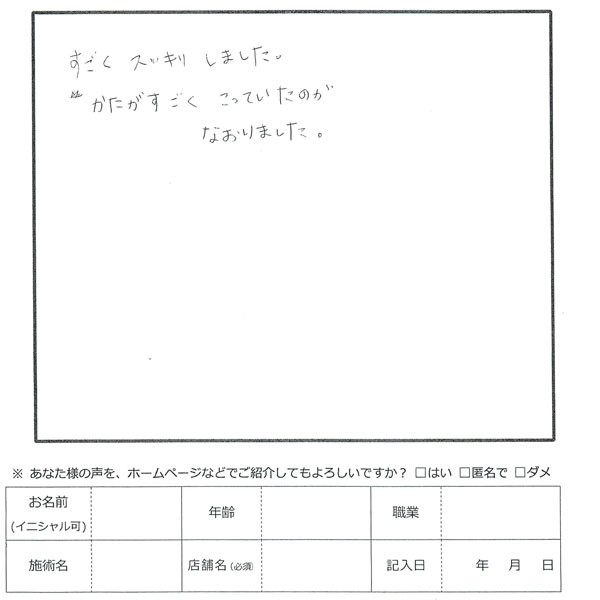 すごく スッキリ しました。
かたがすごく こっていたのが
なおりました。
※ あなた様の声を、ホームページなどでご紹介してもよろしいですか？ □はい □匿名で □ダメ
お名前
(イニシャル可)
年齢
職業
施術名
店舗名（必須）
記入日
年 月 日